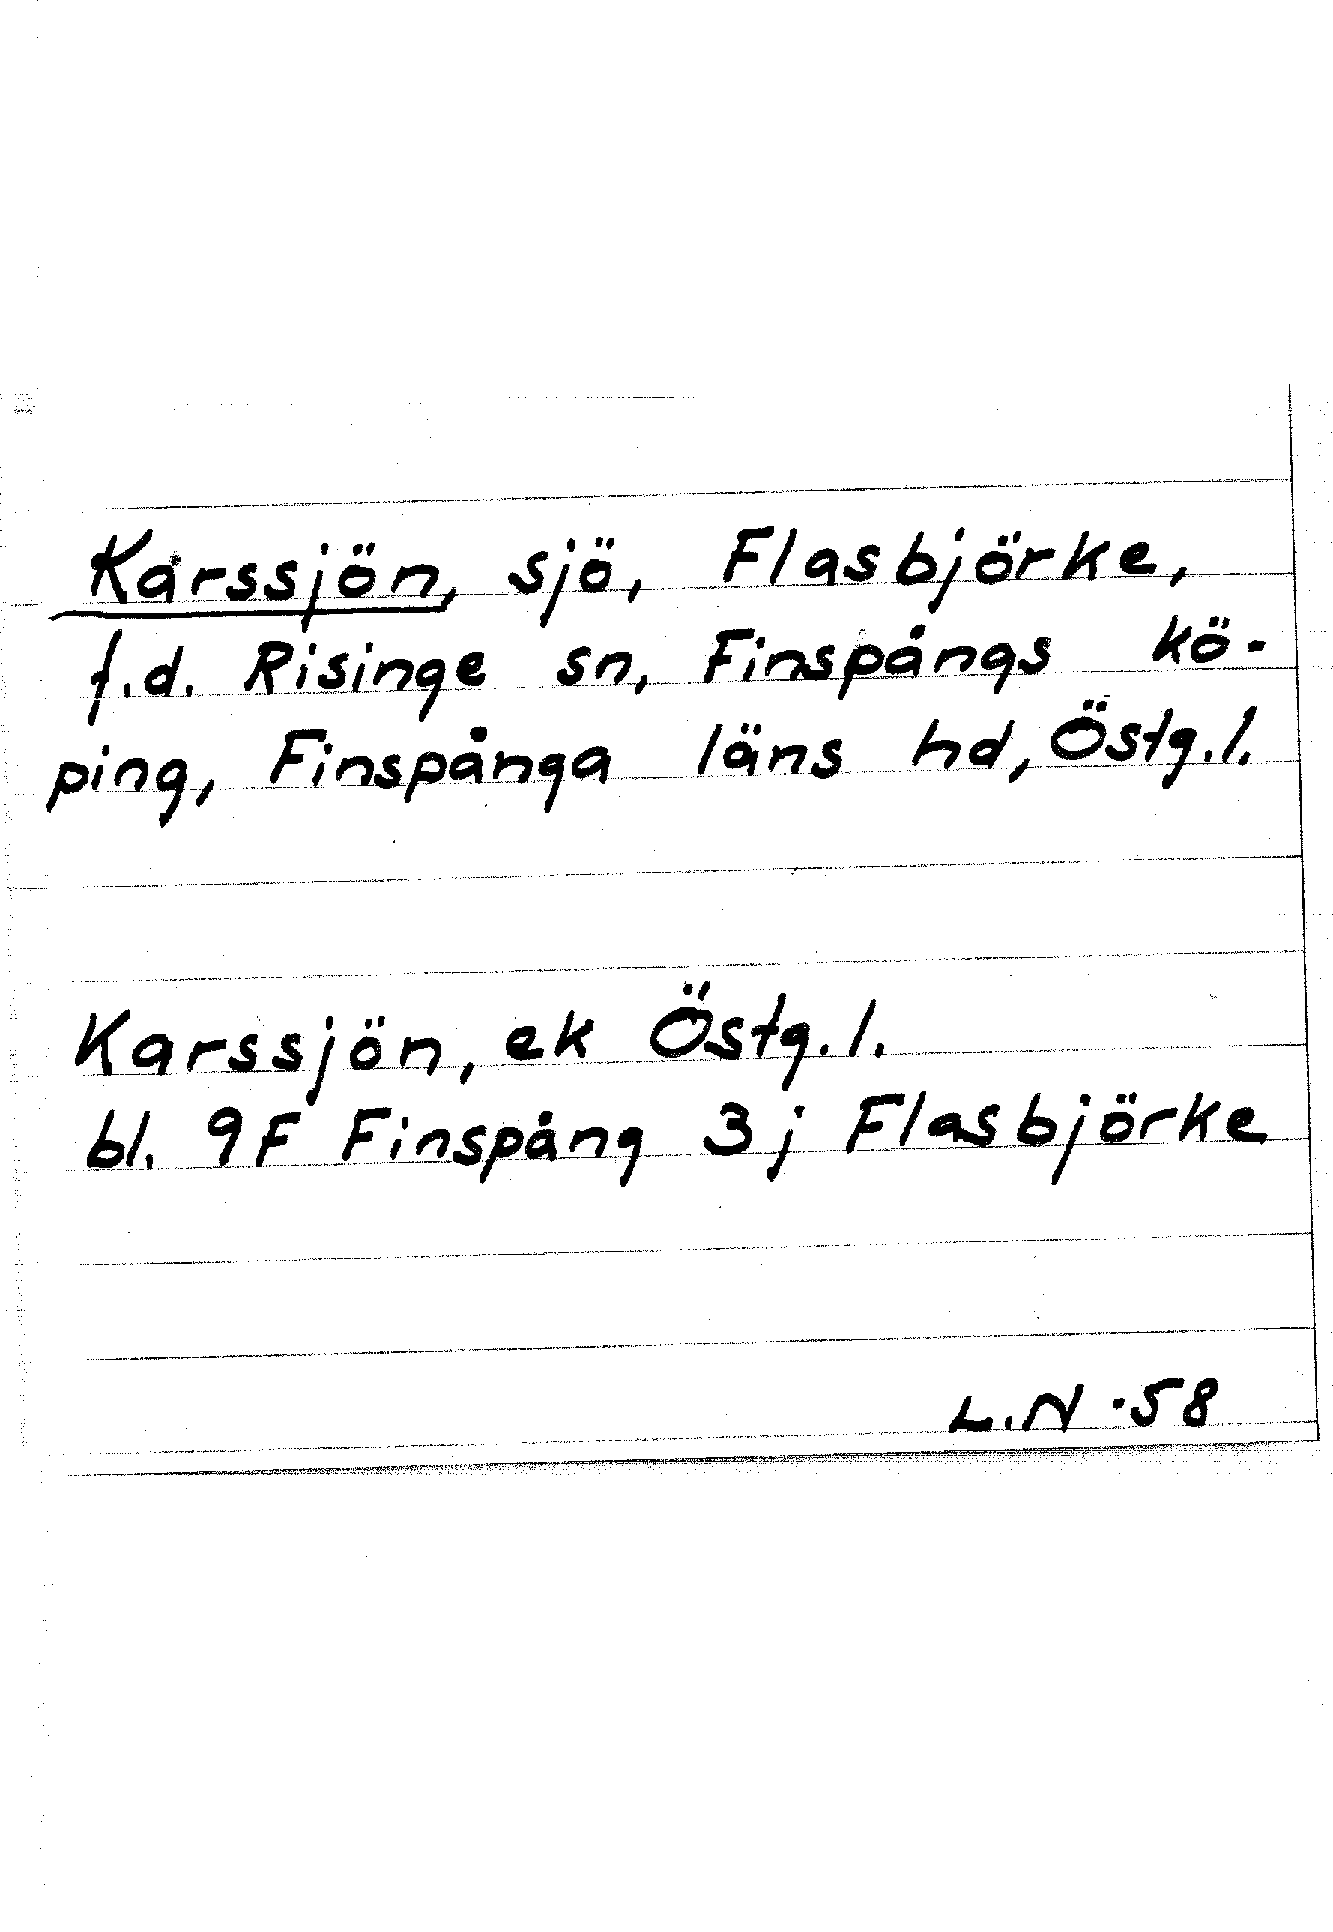 Kårssjön, sjö, Flasbjörke,
f.d. Risinge sn, Finspångs kö-
ping, Finspånga läns hd, Östg.l.
Karssjön, ek Östg.l.
bl. 9F Finspång 3j Flasbjörke
L.N -58